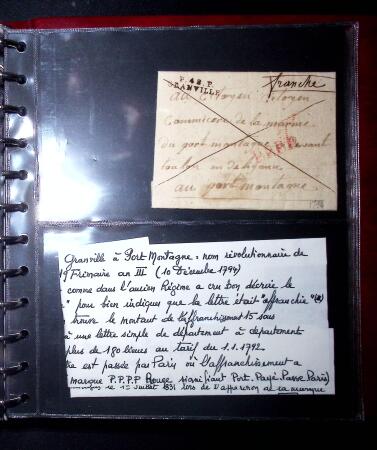 P. 42. P.
GRANVILLE
franche
au Citoyen Citoyen
Commissaire de la marine
du port montagne devant
toulon
au port montagne
P.P.P.P
Granville à Port Montagne = nom révolutionnaire de
19 Frimaire an III (10 Décembre 1794)
comme dans l'ancien Régime a cru bon d'écrire le
" pour bien indiquer que la lettre était "affranchie"
trouve le montant de l'affranchissement 15 sous
à une lettre simple de département à département
plus de 180 lieues au tarif du 1.1.1792.
est passée par Paris où l'affranchissement a
marque P.P.P.P Rouge signifiant Port. Payé. Passe Paris)
1er Juillet 1831 lors de l'apparition de la marque